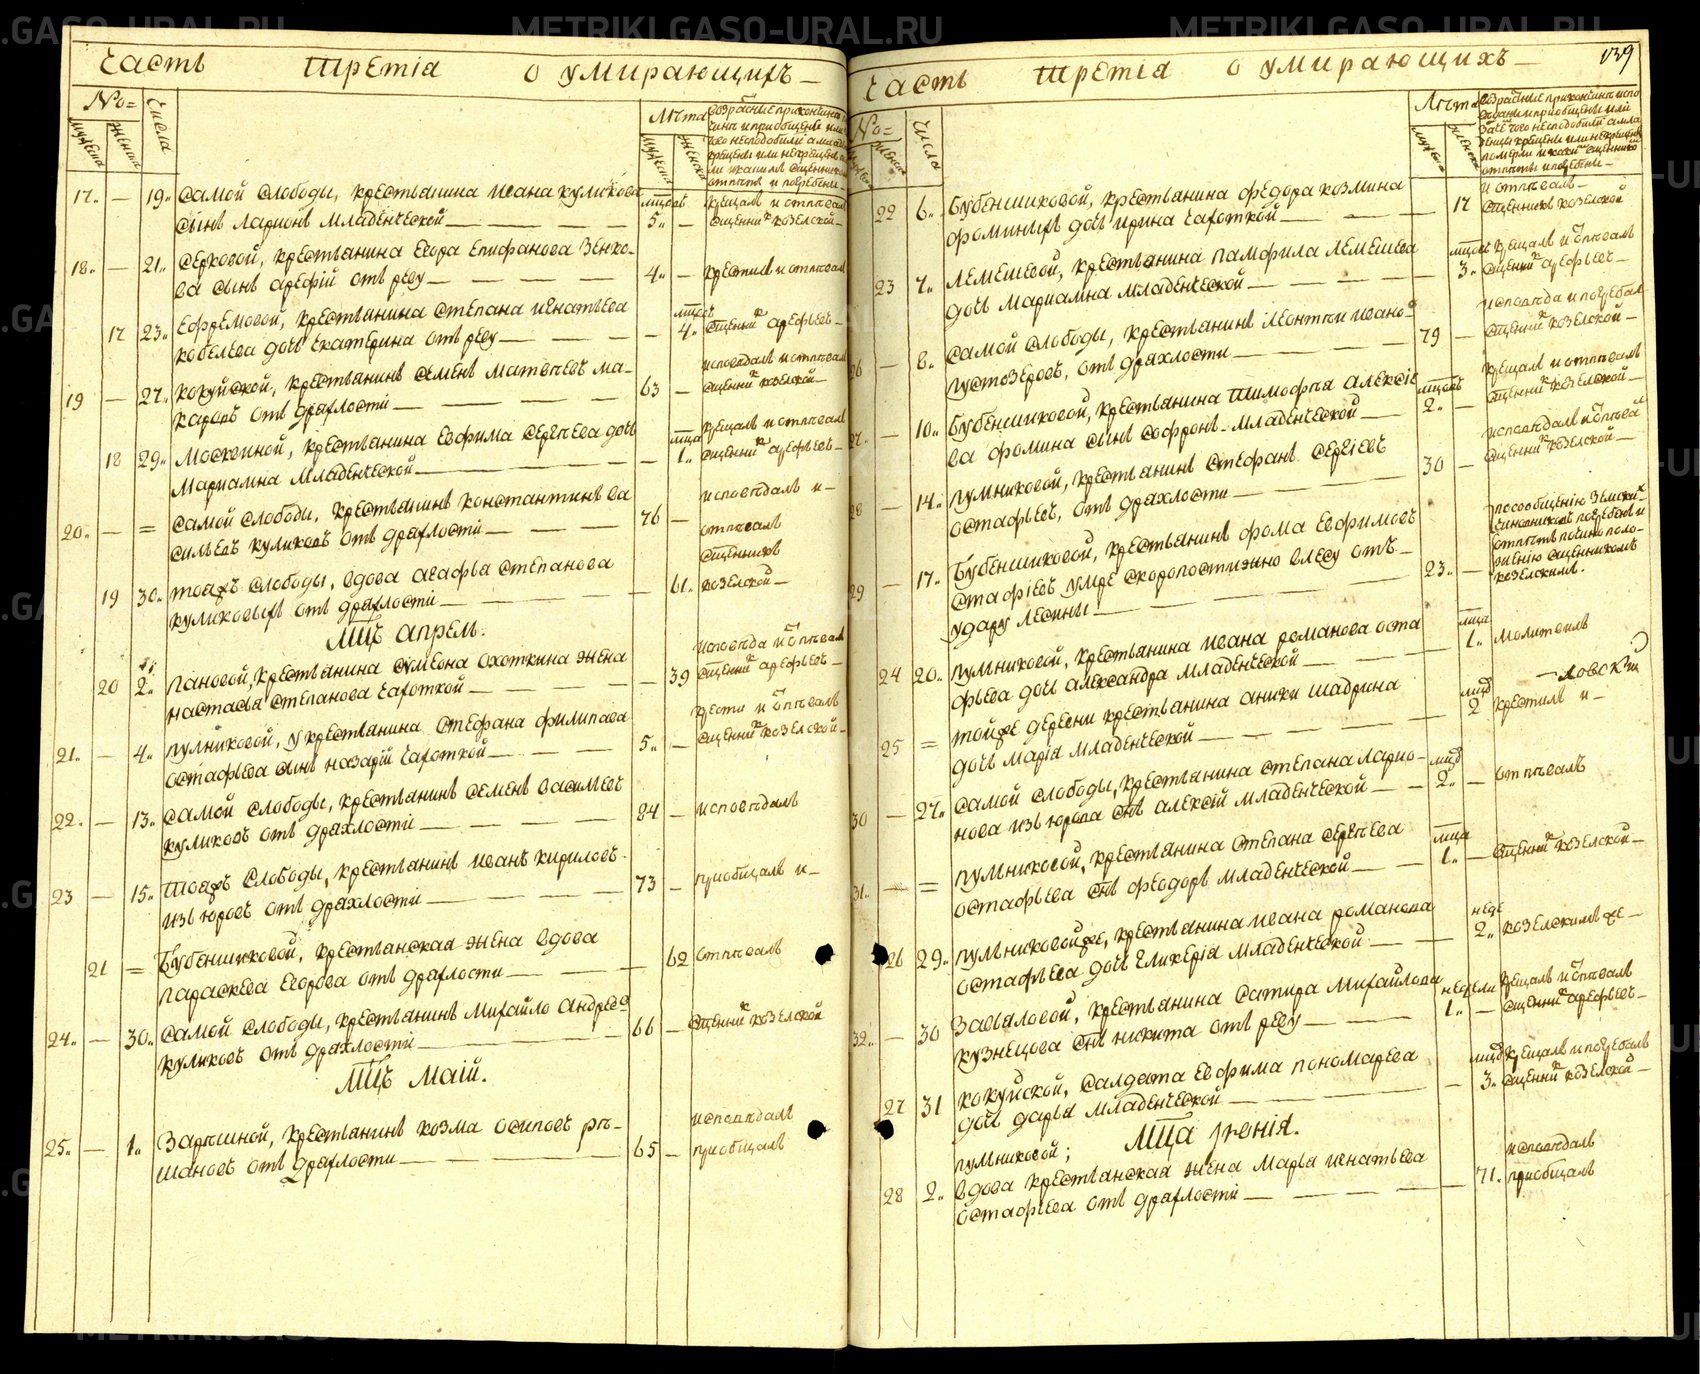 METRIKI.GASO-URAL.RU
METRIKI.GASO-URAL.RU
Часть Третіа о умирающихъ
No=
мужеска
женска
числа
Лѣта
мужеска
женска
17. — 19. Самой слободы, крестьянина Ивана Куликова
сынъ Ларионъ младенческой
мцовъ
5.
крещалъ и отпѣвалъ
сщенникъ Козелской
18. — 21. Серковой, крестьянина Егора Епифанова Зенко-
ва сынъ Арефій отъ реву
4. —
крестилъ и отпѣвалъ
17 23. Ефремовой, крестьянина Степана Игнатьева
Кобелева дочь Екатерина отъ реву
4.
сщенникъ Арефьевъ
19 — 27. Кокуйской, крестьянинъ Семенъ Матвѣевъ Ма-
каровъ отъ драхлости
63 —
исповѣдалъ и отпѣвалъ
сщенникъ Козелской
18 29. Москвиной, крестьянина Евфима Сергѣева дочь
Мариамна младенческой
мца
1.
крещалъ и отпѣвалъ
сщенникъ Арефьевъ
20. — = Самой слободы, крестьянинъ Константинъ Ва
сильевъ Куликовъ отъ драхлости
76 —
исповѣдалъ и —
отпѣвалъ
19 30. тояжъ слободы, вдова Агафья Степанова
Куликовыхъ отъ драхлости
61.
сщенникъ
Козелской
Мцъ Апрель.
20 2. Пановой, крестьянина Сумеона Охоткина жена
Настасья Степанова чахоткой
39
исповѣда и отпѣвалъ
сщенникъ Арефьевъ
21. — 4. Пулниковой, у крестьянина Стефана Филипава
Остафьева сынъ Назарій чахоткой
5. —
крести и отпѣвалъ
сщенникъ Козелской
22. — 13. Самой слободы, крестьянинъ Семенъ Васильевъ
Куликовъ отъ драхлости
84 —
исповѣдалъ
23 — 15. Тояжъ слободы, крестьянинъ Иванъ Кириловъ
Изъюровъ отъ драхлости
73 —
приобщалъ и —
21 = Бубенщиковой, крестьянская жена вдова
Параскева Егорова отъ драхлости
62
отпѣвалъ
24. — 30. Самой слободы, крестьянинъ Михайло Андреевъ
Куликовъ отъ драхлости
66 —
сщенникъ Козелской
Мцъ Маій.
25. — 1. Зарѣчной, крестьянинъ Козма Осиповъ Рѣ-
шановъ отъ драхлости
65 —
исповѣдалъ
приобщалъ
Часть Третіа о умирающихъ
139
No=
женска
числа
Лѣта
22 6. Бубенщиковой, крестьянина Федора Козмина
Фоминыхъ дочь Ирина чахоткой
17
и отпѣвалъ
сщенникъ Козелской
23 7. Лемешевой, крестьянина Памфила Лемешева
дочь Мариамна младенческой
3.
крещалъ и отпѣвалъ
сщенникъ Арефьевъ
26 — 8. Самой слободы, крестьянинъ Леонтіи Ивано
Пустозеровъ, отъ драхлости
79 —
исповѣда и погребал
сщенникъ Козелской
27. — 10. Бубенщиковой, крестьянина Тимофѣя Алексіе
ва Фомина сынъ Софронъ младенческой
мцовъ
2. —
крещалъ и отпѣвалъ
сщенникъ Козелской
28 — 14. Пулниковой, крестьянинъ Стефанъ Сергіевъ
Остафьевъ, отъ драхлости
30 —
исповѣдалъ и отпѣвал
сщенникъ Козелской
29 — 17. Бубенщиковой, крестьянинъ Фома Евфимовъ
Стафіевъ умре скоропостижно в лесу отъ
удару лесины
23. —
по сообщенію земских
чиновниковъ погребенъ и
отпѣтъ по чиноположению
сщенникомъ
Козелскимъ.
24 20. Пулниковой, крестьянина Ивана Романова Оста
фьева дочь Александра младенческой
мца
1.
молитвилъ
25 = Тойже деревни крестьянина Аники Шадрина
дочь Маріа младенческой
2
крестилъ и —
30 — 27. Самой слободы, крестьянина Степана Ларио-
нова Изъюрова снъ Алексій младенческой
2. —
отпѣвалъ
31. — = Пулниковой, крестьянина Степана Сергѣева
Остафьева снъ Феодоръ младенческой
мца
1. —
сщенникъ Козелской
26 29. Пулниковой же, крестьянина Ивана Романова
Остафьева дочь Гликеріа младенческой
неде
2.
Козелскимъ же —
32. — 30 Завьяловой, крестьянина Сатира Михайлова
Кузнецова снъ Никита отъ реву
недели
1. —
крещалъ и отпѣвалъ
сщенникъ Арефьевъ
27 31 Кокуйской, салдата Евфима Пономарева
дочь Дарья младенческой
3.
крещалъ и погребалъ
сщенникъ Козелской
Мца Іюніа.
28 2. Пулниковой;
вдова крестьянская жена Марья Игнатьева
Остафьева отъ драхлости
71.
исповѣдалъ
приобщалъ